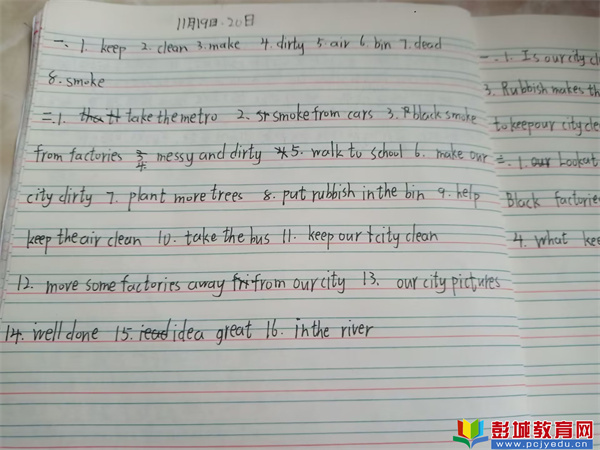 11月19日.20日
一、1. keep 2. clean 3. make 4. dirty 5. air 6. bin 7. dead
8. smoke
二.1. take the metro 2. smoke from cars 3. black smoke
from factories 4 messy and dirty 5. walk to school 6. make our
city dirty 7. plant more trees 8. put rubbish in the bin 9. help
keep the air clean 10. take the bus 11. keep our city clean
12. move some factories away from our city 13. our city pictures
14. well done 15. idea great 16. in the river
一.1. Is our city cl
3. Rubbish makes th
to keep our city cle
二.1. Look at
Black factorie
4. What kee
彭城教育网
www.pcjyedu.cn